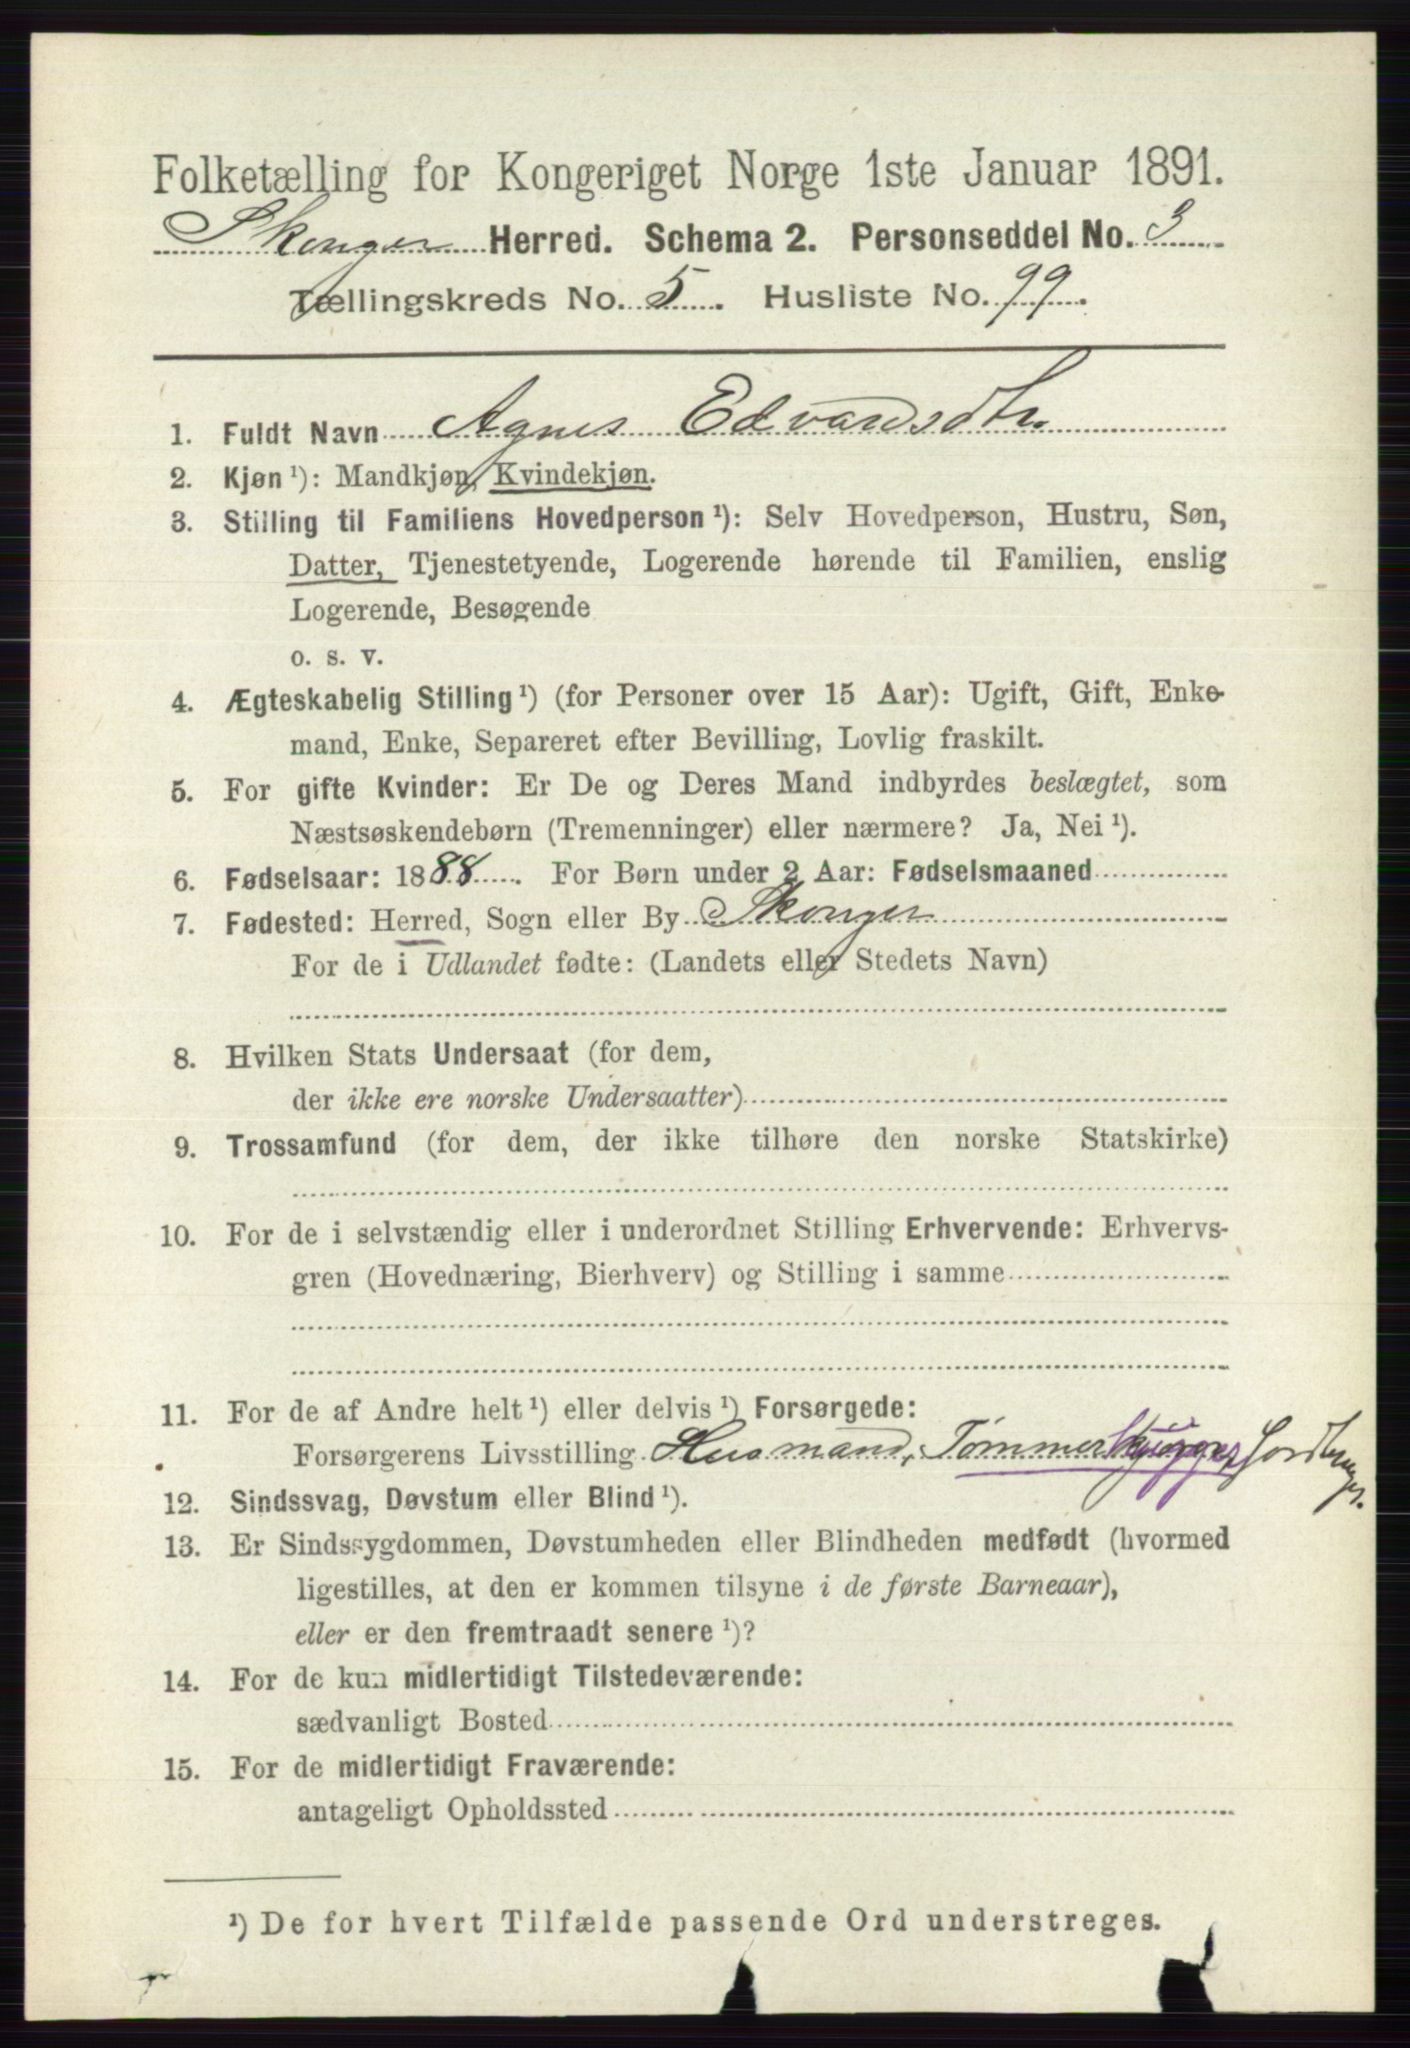 Folketælling for Kongeriget Norge 1ste Januar 1891.
Skoger Herred. Schema 2. Personseddel No. 3
Tællingskreds No. 5. Husliste No. 99.
1. Fuldt Navn Agnes Edvardsdtr.
2. Kjøn ¹): Mandkjøn, Kvindekjøn.
3. Stilling til Familiens Hovedperson ¹): Selv Hovedperson, Hustru, Søn,
Datter, Tjenestetyende, Logerende hørende til Familien, enslig
Logerende, Besøgende
o. s. v.
4. Ægteskabelig Stilling ¹) (for Personer over 15 Aar): Ugift, Gift, Enke-
mand, Enke, Separeret efter Bevilling, Lovlig fraskilt.
5. For gifte Kvinder: Er De og Deres Mand indbyrdes beslægtet, som
Næstsøskendebørn (Tremenninger) eller nærmere? Ja, Nei ¹).
6. Fødselsaar: 1888. For Børn under 2 Aar: Fødselsmaaned
7. Fødested: Herred, Sogn eller By Skoger
For de i Udlandet fødte: (Landets eller Stedets Navn)
8. Hvilken Stats Undersaat (for dem,
der ikke ere norske Undersaatter)
9. Trossamfund (for dem, der ikke tilhøre den norske Statskirke)
10. For de i selvstændig eller i underordnet Stilling Erhvervende: Erhvervs-
gren (Hovednæring, Bierhverv) og Stilling i samme
11. For de af Andre helt ¹) eller delvis ¹) Forsørgede:
Forsørgerens Livsstilling Husmand, Tømmerkjører, Jordbruger.
12. Sindssvag, Døvstum eller Blind ¹).
13. Er Sindssygdommen, Døvstumheden eller Blindheden medfødt (hvormed
ligestilles, at den er kommen tilsyne i de første Barneaar),
eller er den fremtraadt senere ¹)?
14. For de kun midlertidigt Tilstedeværende:
sædvanligt Bosted
15. For de midlertidigt Fraværende:
antageligt Opholdssted
¹) De for hvert Tilfælde passende Ord understreges.